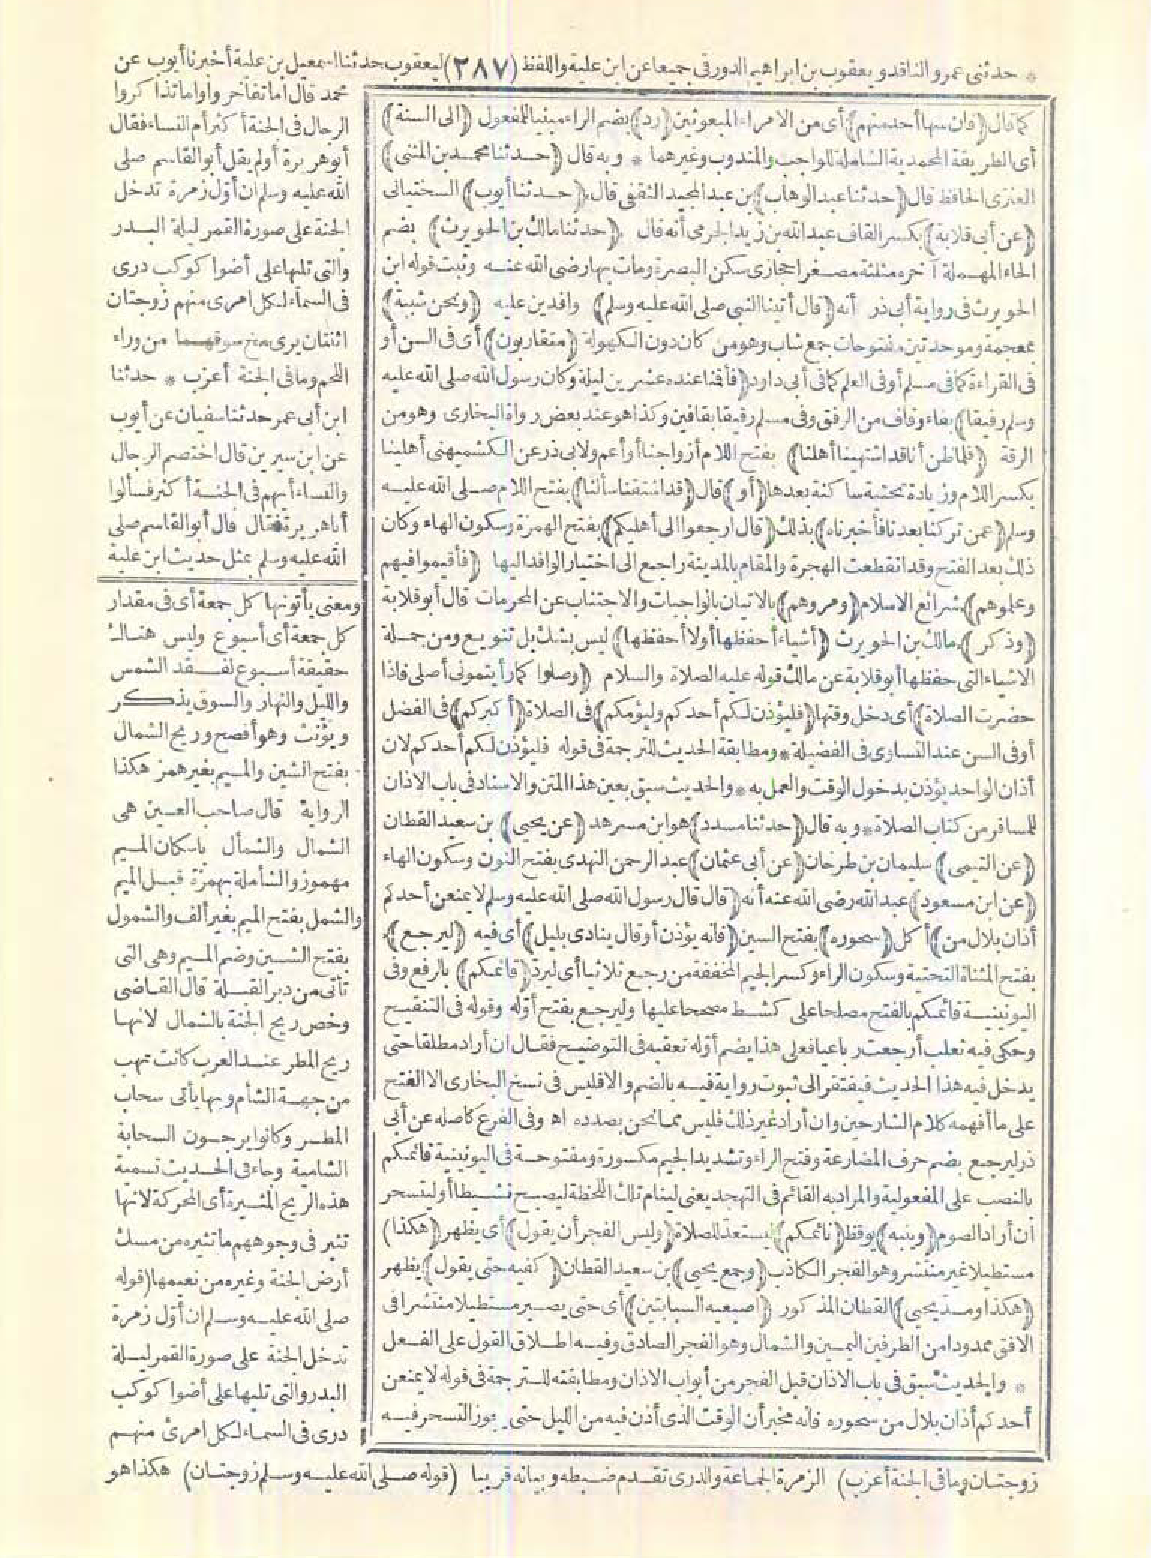 * حدثنى عمرو الناقد ويعقوب بن ابراهيم الدورقى جميعا عن ابن علية واللفظ (٢٨٧) ليعقوب حدثنا اسمعيل بن علية أخبرنا أيوب عن
محمد قال اما تفاخروا واما تذاكروا
الرجال فى الجنة أكثر أم النساء فقال
أبو هريرة أولم يقل أبو القاسم صلى
الله عليه وسلم ان أول زمرة تدخل
الجنة على صورة القمر ليلة البدر
والتى تليها على أضوا كوكب درى
فى السماء لكل امرئ منهم زوجتان
اثنتان يرى مخ سوقهما من وراء
اللحم وما فى الجنة أعزب * حدثنا
ابن أبى عمر حدثنا سفيان عن أيوب
عن ابن سيرين قال اختصم الرجال
والنساء أيهم فى الجنة أكثر فسألوا
أبا هريرة فقال قال أبو القاسم صلى
الله عليه وسلم بمثل حديث ابن علية
ومعنى يأتونها كل جمعة أى فى مقدار
كل جمعة أى أسبوع وليس هناك
حقيقة أسبوع لفقد الشمس
والليل والنهار والسوق يذكر
ويؤنث وهو أفصح وريح الشمال
بفتح الشين والميم بغير همز هكذا
الرواية قال صاحب العين هى
الشمال والشمأل باسكان الميم
مهموز والشأملة بهمزة قبل الميم
والشمل بفتح الميم بغير ألف والشمول
بفتح الشين وضم الميم وهى التى
تأتى من دبر القبلة قال القاضى
وخص ريح الجنة بالشمال لانها
ريح المطر عند العرب كانت تهب
من جهة الشأم وبها يأتى سحاب
المطر وكانوا يرجون السحابة
الشامية وجاء فى الحديث تسمية
هذه الريح المثيرة أى المحركة لانها
تثير فى وجوههم ما تثيره من مسك
أرض الجنة وغيره من نعيمها (قوله
صلى الله عليه وسلم ان أول زمرة
تدخل الجنة على صورة القمر ليلة
البدر والتى تليها على أضوا كوكب
درى فى السماء لكل امرئ منهم
كما قال (فان سها أحد منهم) أى من الامراء المبعوثين (رد) بضم الراء مبنيا للمفعول (الى السنة)
أى الطريقة المحمدية الشاملة للواجب والمندوب وغيرهما * وبه قال (حدثنا محمد بن المثنى)
العنزى الحافظ قال (حدثنا عبد الوهاب) بن عبد المجيد الثقفى قال (حدثنا أيوب) السختيانى
(عن أبى قلابة) بكسر القاف عبد الله بن زيد الجرمى أنه قال (حدثنا مالك بن الحويرث) بضم
الحاء المهملة آخره مثلثة مصغرا حجازى سكن البصرة ومات بها رضى الله عنه وثبت قوله ابن
الحويرث فى رواية أبى ذر أنه (قال أتينا النبى صلى الله عليه وسلم) وافدين عليه (ونحن شببة)
بمعجمة وموحدتين مفتوحات جمع شاب وهو من كان دون الكهولة (متقاربون) أى فى السن أو
فى القراءة كما فى مسلم أو فى العلم كما فى أبى داود (فأقنا عنده عشرين ليلة وكان رسول الله صلى الله عليه
وسلم رفيقا) بفاء وقاف من الرفق وفى مسلم رقيقا بقافين وكذا هو عند بعض رواة البخارى وهو من
الرقة (فلما ظن أنا قد اشتهينا أهلنا) بفتح اللام أزواجنا أو أعم ولابى ذر عن الكشميهنى أهلينا
بكسر اللام وزيادة تحتية ساكنة بعدها (أو) قال (قد اشتقنا سألنا) بفتح اللام صلى الله عليه
وسلم (عمن تركنا بعدنا فأخبرناه) بذلك (قال ارجعوا الى أهليكم) بفتح الهمزة وسكون الهاء وكان
ذلك بعد الفتح وقد انقطعت الهجرة والمقام بالمدينة راجع الى اختيار الوافد اليها (فأقيموا فيهم
وعلموهم) شرائع الاسلام (ومروهم) بالاتيان بالواجبات والاجتناب عن المحرمات قال أبو قلابة
(وذكر) مالك بن الحويرث (أشياء أحفظها أو لا أحفظها) ليس بشك بل تنويع ومن جملة
الاشياء التى حفظها أبو قلابة عن مالك قوله عليه الصلاة والسلام (وصلوا كما رأيتمونى أصلى فاذا
حضرت الصلاة) أى دخل وقتها (فليؤذن لكم أحدكم وليؤمكم) فى الصلاة (أكبركم) فى الفضل
أو فى السن عند التساوى فى الفضيلة * ومطابقة الحديث للترجمة فى قوله فليؤذن لكم أحدكم لان
أذان الواحد يؤذن بدخول الوقت والعمل به * والحديث سبق بعين هذا المتن والاسناد فى باب الاذان
للمسافر من كتاب الصلاة * وبه قال (حدثنا مسدد) هو ابن مسرهد (عن يحيى) بن سعيد القطان
(عن التيمى) سليمان بن طرخان (عن أبى عثمان) عبد الرحمن النهدى بفتح النون وسكون الهاء
(عن ابن مسعود) عبد الله رضى الله عنه أنه (قال قال رسول الله صلى الله عليه وسلم لا يمنعن أحدكم
أذان بلال من) أكل (سحوره) بفتح السين (فانه يؤذن أو قال ينادى بليل) أى فيه (ليرجع)
بفتح المثناة التحتية وسكون الراء وكسر الجيم المخففة من رجع ثلاثيا أى ليرد (قائمكم) بالرفع وفى
اليونينية قائمكم بالفتح مصلحا على كشط مصححا عليها وليرجع بفتح أوله وقوله فى التنقيح
وحكى فيه ثعلب أرجعت رباعيا فعلى هذا يضم أوله تعقبه فى التوضيح فقال ان أراد مطلقا حتى
يدخل فيه هذا الحديث فيفتقر الى ثبوت رواية فيه بالضم والا فليس فى نسخ البخارى الا الفتح
على ما أفهمه كلام الشارحين وان أراد غير ذلك فليس مما نحن بصدده اه وفى الفرع كأصله عن أبى
ذر ليرجع بضم حرف المضارعة وفتح الراء وتشديد الجيم مكسورة ومفتوحة فى اليونينية قائمكم
بالنصب على المفعولية والمراد به القائم فى التهجد يعنى لينام تلك اللحظة ليصبح نشيطا أو ليتسحر
ان أراد الصوم (وينبه) يوقظ (نائمكم) ليستعد للصلاة (وليس الفجر أن يقول) أى يظهر (هكذا)
مستطيلا غير منتشر وهو الفجر الكاذب (وجمع يحيى) بن سعيد القطان (كفيه حتى يقول) يظهر
(هكذا ومد يحيى) القطان المذكور (اصبعيه السبابتين) أى حتى يصير مستطيلا منتشرا فى
الافق ممدودا من الطرفين اليمين والشمال وهو الفجر الصادق وفيه اطلاق القول على الفعل
* والحديث سبق فى باب الاذان قبل الفجر من أبواب الاذان ومطابقته للترجمة فى قوله لا يمنعن
أحدكم أذان بلال من سحوره فانه مخبر أن الوقت الذى أذن فيه من الليل حتى يجوز التسحر فيه
زوجتان وما فى الجنة أعزب) الزمرة الجماعة والدرى تقدم ضبطه وبيانه قريبا (قوله صلى الله عليه وسلم زوجتان) هكذا هو